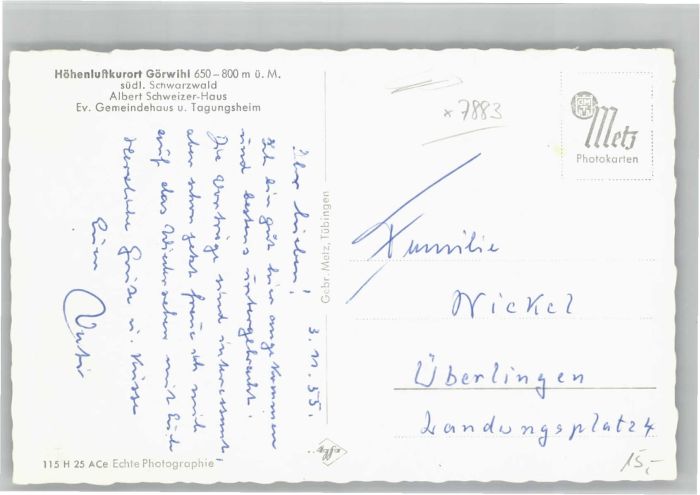 Höhenluftkurort Görwihl 650–800 m ü. M.
südl. Schwarzwald
Albert Schweizer-Haus
Ev. Gemeindehaus u. Tagungsheim
3.11.55.
Ihr Lieben!
Ich bin gut hier angekommen
und bestens untergebracht.
Die Vorträge sind interessant,
aber schon jetzt freue ich mich
auf das Wiedersehen mit Euch
Herzliche Grüße u. Küsse
Euer
Vati
Gebr. Metz, Tübingen
x 7883
Metz
Photokarten
Familie
Nickel
Überlingen
Landungsplatz 4
15,-
115 H 25 ACe Echte Photographie
Agfa